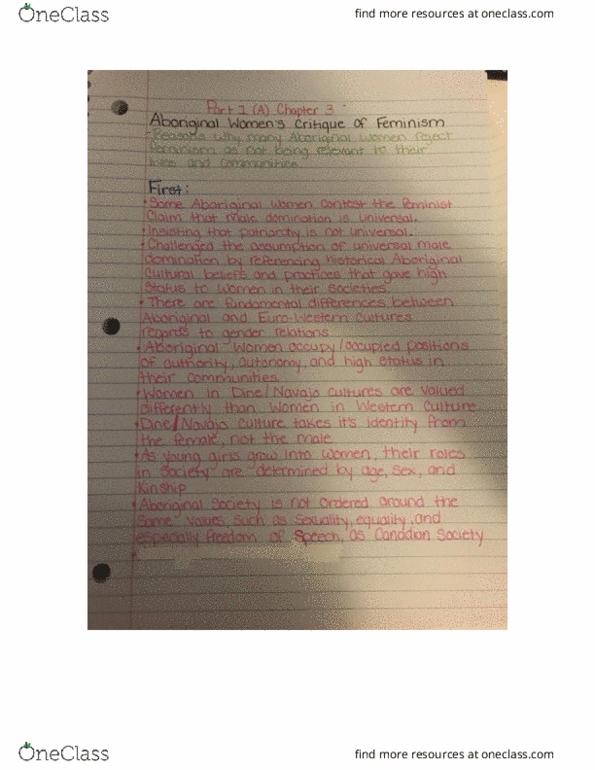 OneClass
find more resources at oneclass.com
Part 1 (A) Chapter 3
Aboriginal Women's Critique of Feminism
Reasons why many Aboriginal women reject
feminism as not being relevant to their
lives and communities
First:
Some Aboriginal women contest the feminist
claim that male domination is universal.
Insisting that patriarchy is not universal.
Challenged the assumption of universal male
domination by referencing historical Aboriginal
cultural beliefs and practices that gave high
status to women in their societies
There are fundamental differences between
Aboriginal and Euro-Western cultures
regards to gender relations
Aboriginal Women occupy/occupied positions
of authority, autonomy, and high status in
their communities
Women in Dine/Navajo cultures are valued
differently than women in Western Culture
Dine/Navajo culture takes it's identity from
the female, not the male
As young girls grow into women, their roles
in society are determined by age, sex, and
kinship
Aboriginal Society is not ordered around the
same values such as sexuality, equality, and
especially freedom of speech, as Canadian Society
OneClass
find more resources at oneclass.com